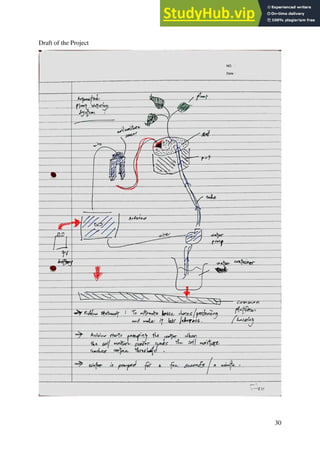 StudyHub.vip
Experienced writers
On-time delivery
100% plagiarism free
Draft of the Project
NO :
Date :
Automated
Plant watering
System
plant
soil moisture
sensor
soil
wire
pot
tube
Arduino
wire
water
pump
9V
battery
water container
common
platform
/ housing
→ Problem statement : To automate basic chores / gardening
and make it less laborious.
→ Arduino starts pumping the water when
the soil moisture sensor the soil moisture
reaches certain threshold.
→ Water is pumped for a few seconds / a minute.
30